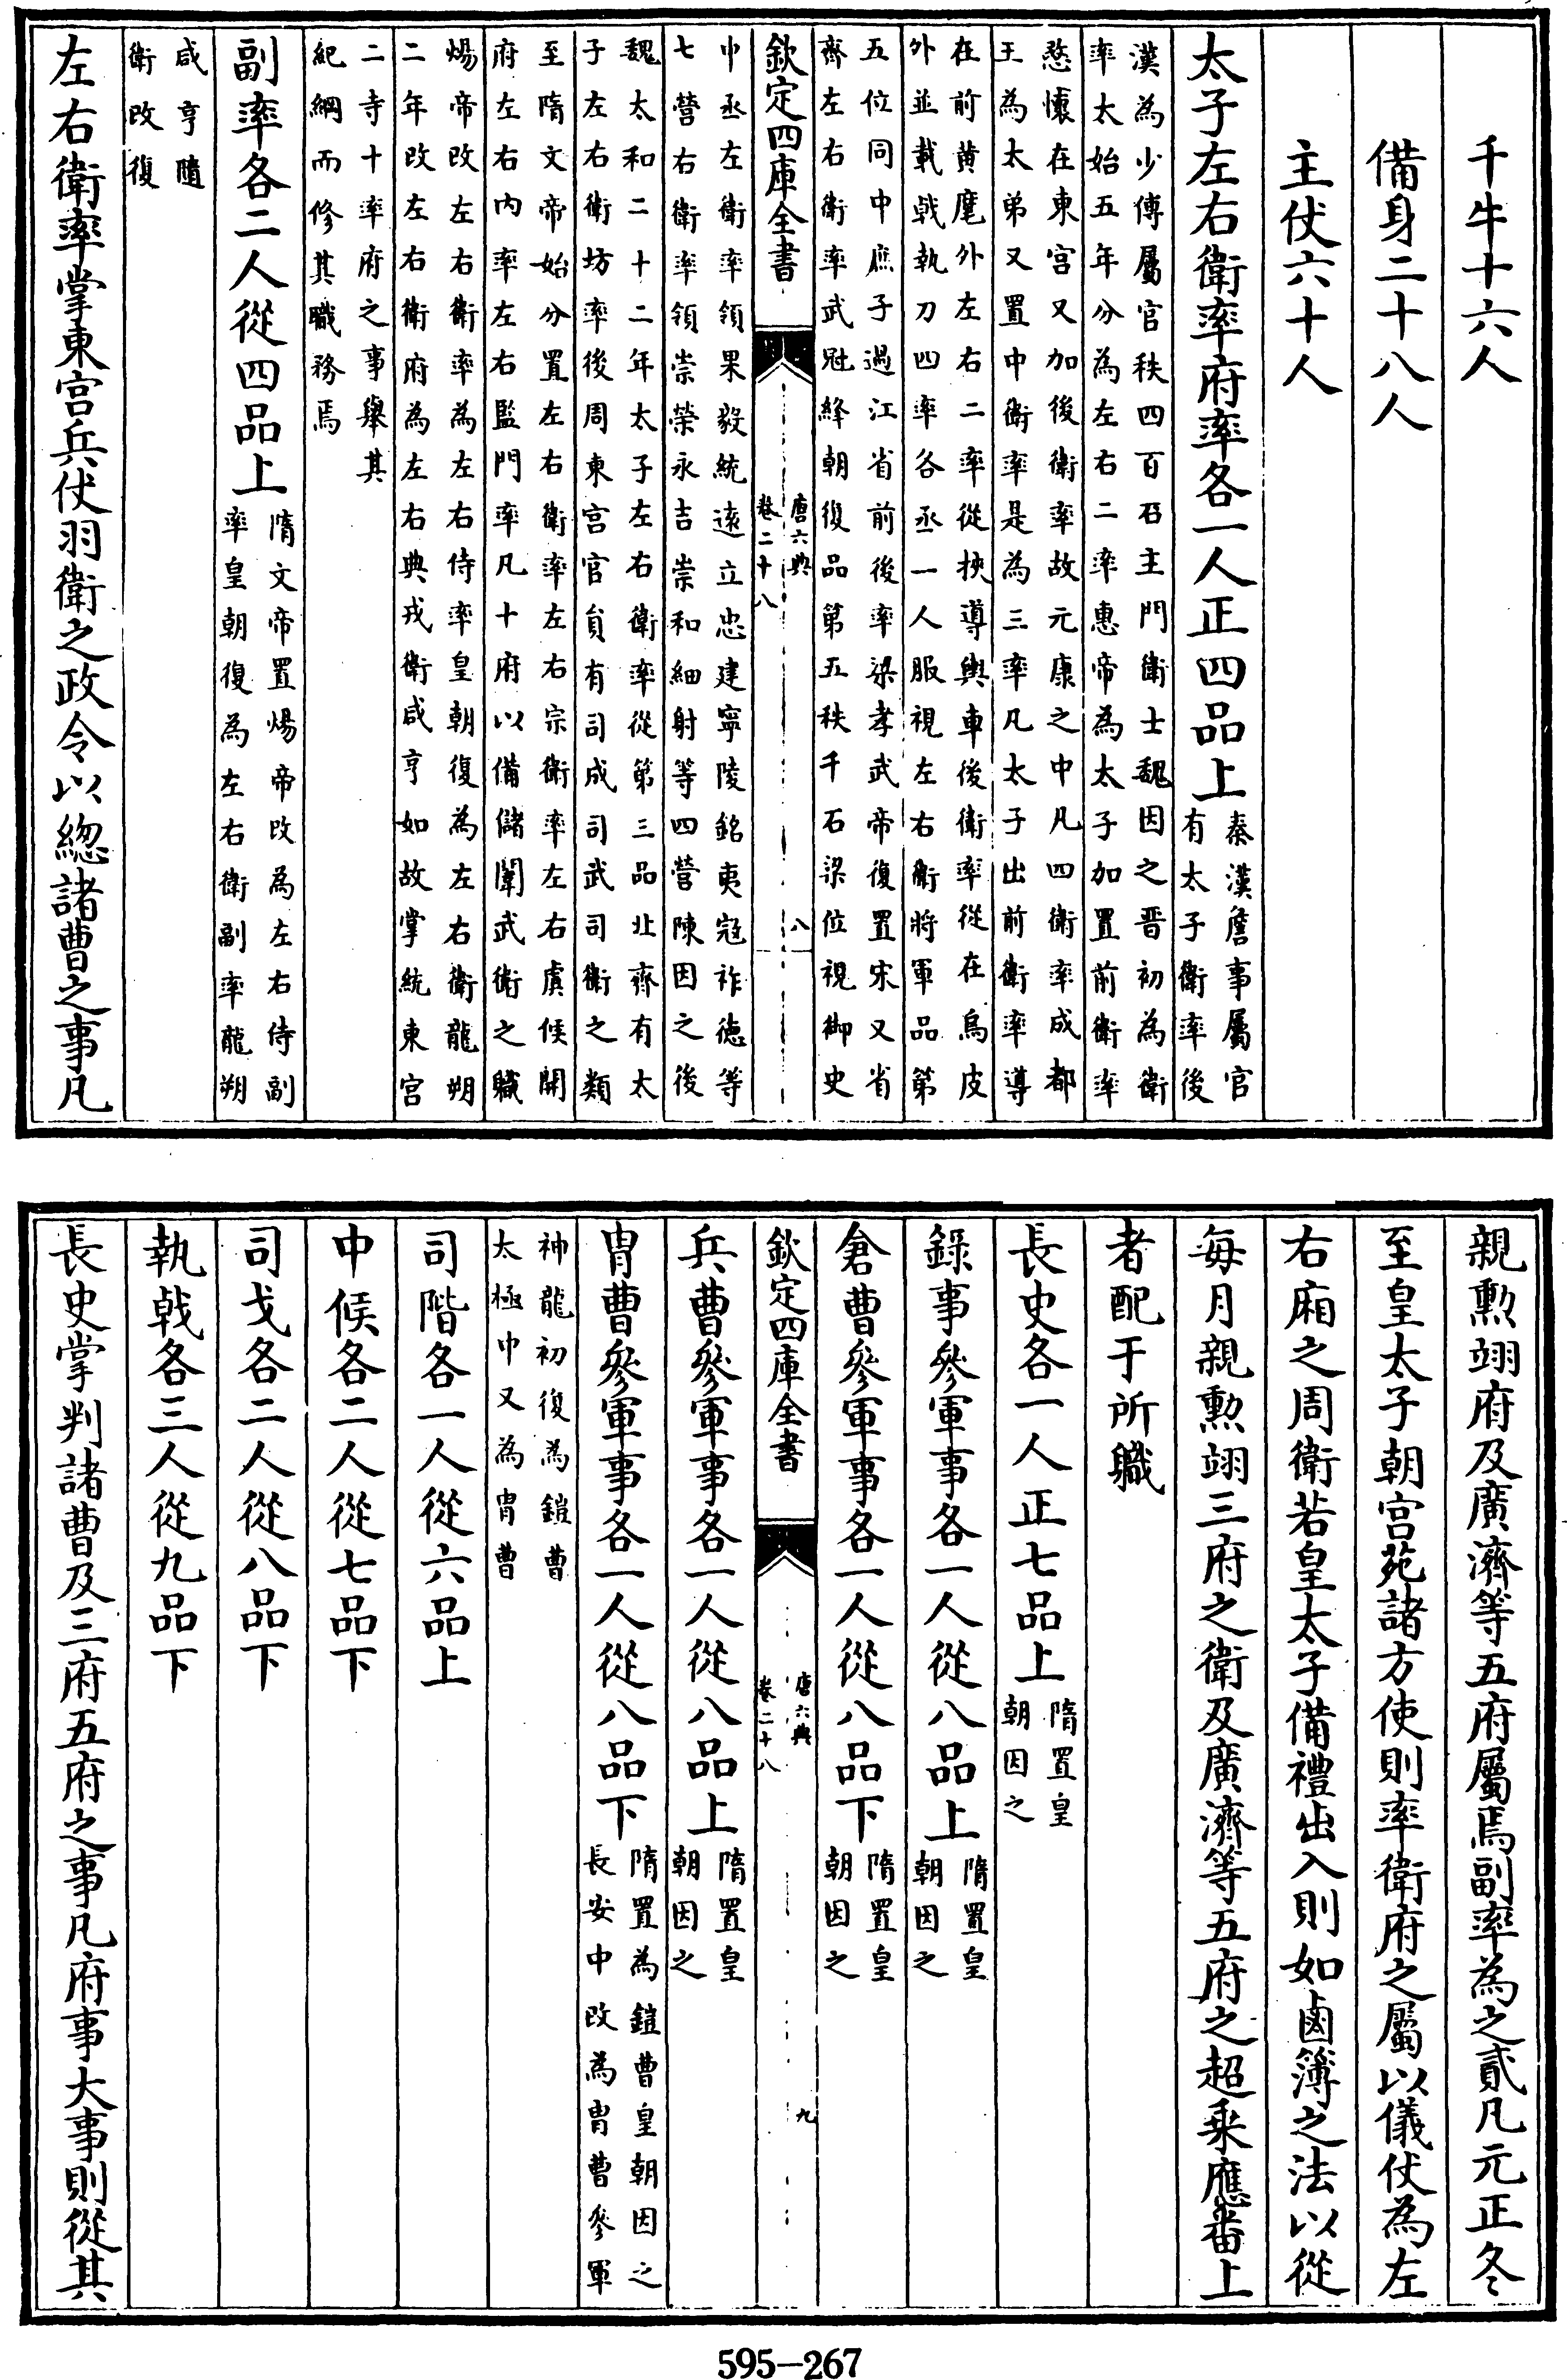 千牛十六人
備身二十八人
主仗六十人
太子左右衛率府率各一人正四品上秦漢詹事屬官
有太子衛率後
漢為少傅屬官秩四百石主門衛士魏因之晉初為衛
率太始五年分為左右二率惠帝為太子加置前衛率
愍懷在東宮又加後衛率故元康之中凡四衛率成都
王為太弟又置中衛率是為三率凡太子出前衛率導
在前黄麾外左右二率從挾導輿車後衛率從在烏皮
外並載戟執刀四率各丞一人服視左右衛將軍品第
五位同中庶子過江省前後率梁孝武帝復置宋又省
齊左右衛率武冠絳朝復品第五秩千石梁位視御史
欽定四庫全書
唐六典
卷二十八
八
中丞左衛率領果毅統遠立忠建寧陵銘夷冦祚徳等
七營右衛率領崇榮永吉崇和細射等四營陳因之後
魏太和二十二年太子左右衛率從第三品北齊有太
子左右衛坊率後周東宮官貟有司成司武司衛之類
至隋文帝始分置左右衛率左右宗衛率左右虞候開
府左右内率左右監門率凡十府以備儲闈武衛之職
煬帝改左右衛率為左右侍率皇朝復為左右衛龍朔
二年改左右衛府為左右典戎衛咸亨如故掌統東宫
二寺十率府之事舉其
紀綱而修其職務焉
副率各二人從四品上隋文帝置煬帝改為左右侍副
率皇朝復為左右衛副率龍朔
咸亨隨
衛改復
左右衛率掌東宫兵仗羽衛之政令以緫諸曹之事凡
親勲翊府及廣濟等五府屬焉副率為之貳凡元正冬
至皇太子朝宫苑諸方使則率衛府之屬以儀仗為左
右廂之周衛若皇太子備禮出入則如鹵簿之法以從
每月親勲翊三府之衛及廣濟等五府之超乘應番上
者配于所職
長史各一人正七品上隋置皇
朝因之
錄事參軍事各一人從八品上隋置皇
朝因之
倉曹參軍事各一人從八品下隋置皇
朝因之
欽定四庫全書
唐六典
卷二十八
九
兵曹參軍事各一人從八品上隋置皇
朝因之
胄曹參軍事各一人從八品下隋置為鎧曹皇朝因之
長安中改為胄曹參軍
神龍初復為鎧曹
太極中又為胄曹
司階各一人從六品上
中候各二人從七品下
司戈各二人從八品下
執戟各三人從九品下
長史掌判諸曹及三府五府之事凡府事大事則從其
595-267